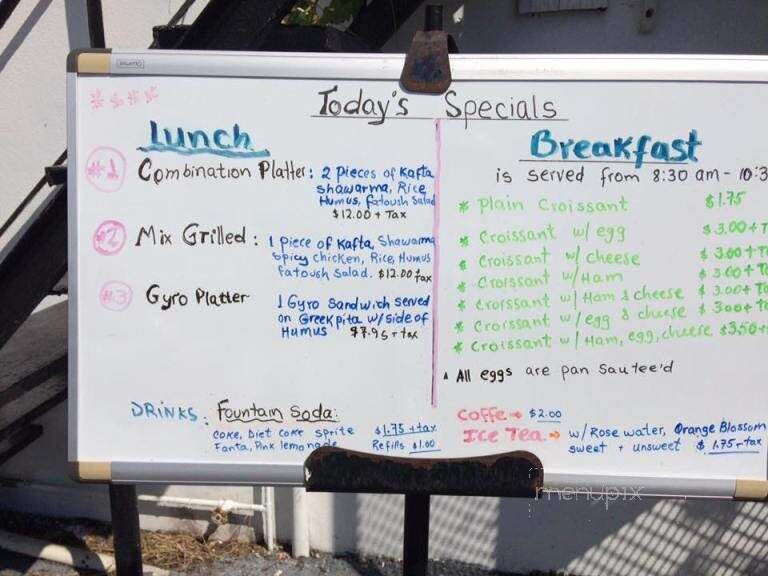 Today's Specials
Lunch
#1 Combination Platter: 2 Pieces of Kafta
Shawarma, Rice
Humus, fatoush Salad
$12.00 + Tax
#2 Mix Grilled: 1 Piece of Kafta, Shawarma
Spicy chicken, Rice, Humus
fatoush Salad. $12.00 + tax
#3 Gyro Platter 1 Gyro Sandwich served
on Greek pita w/side of
Humus $7.95 + tax
DRINKS: Fountain Soda:
Coke, Diet Coke Sprite $1.75 + tax
Fanta, Pink lemonade Refills $1.00
Breakfast
is served from 8:30 am - 10:3
* Plain Croissant $1.75
* Croissant w/ egg $3.00 + T
* Croissant w/ cheese $3.00 + T
* Croissant w/ Ham $3.00 + T
* Croissant w/ Ham & cheese $3.00 + T
* Croissant w/ egg & cheese $3.00 + T
* Croissant w/ Ham, egg, cheese $3.50 +
All eggs are pan sautee'd
Coffe → $2.00
Ice Tea → w/ Rose water, Orange Blossom
sweet + unsweet $1.75 + tax
menupix